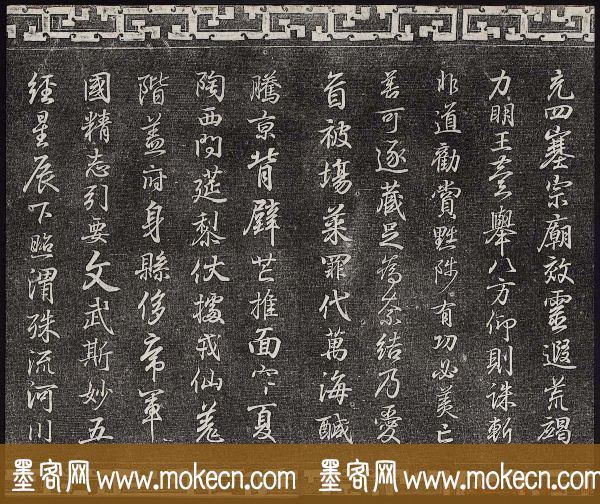 充四塞宗廟效靈遐荒碣
力明王舉八方仰則誅斬
非道勸賞黜陟有功必美亡
善可逐藏足為奈結乃愛
首被場菜罪代萬海鹹
騰京背壁芒推面夏
陶西問莚黎伏據戎仙羌
階盖府身縣侈帝軍
國精志引要文武斯妙五
經星辰下照渭殊流河川
墨客网 www.mokecn.com 墨客网 www.mokecn.com